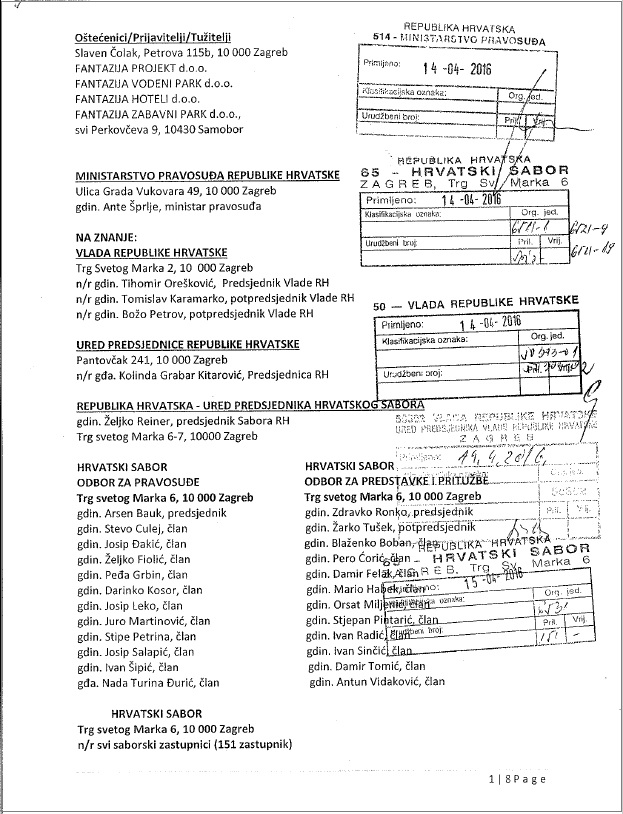 Oštećenici/Prijavitelji/Tužitelji
Slaven Čolak, Petrova 115b, 10 000 Zagreb
FANTAZIJA PROJEKT d.o.o.
FANTAZIJA VODENI PARK d.o.o.
FANTAZIJA HOTELI d.o.o.
FANTAZIJA ZABAVNI PARK d.o.o.,
svi Perkovčeva 9, 10430 Samobor
REPUBLIKA HRVATSKA
514 - MINISTARSTVO PRAVOSUĐA
Primljeno: 14-04-2016
Klasifikacijska oznaka: Org. jed.
Urudžbeni broj: Pril. Vrij.
MINISTARSTVO PRAVOSUĐA REPUBLIKE HRVATSKE
Ulica Grada Vukovara 49, 10 000 Zagreb
gdin. Ante Šprlje, ministar pravosuđa
REPUBLIKA HRVATSKA
65 - HRVATSKI SABOR
ZAGREB, Trg Sv. Marka 6
Primljeno: 14-04-2016
Klasifikacijska oznaka: Org. jed.
Urudžbeni broj: Pril. Vrij.
NA ZNANJE:
VLADA REPUBLIKE HRVATSKE
Trg Svetog Marka 2, 10 000 Zagreb
n/r gdin. Tihomir Orešković, Predsjednik Vlade RH
n/r gdin. Tomislav Karamarko, potpredsjednik Vlade RH
n/r gdin. Božo Petrov, potpredsjednik Vlade RH
50 — VLADA REPUBLIKE HRVATSKE
Primljeno: 14-04-2016
Klasifikacijska oznaka: Org. jed.
Urudžbeni broj:
URED PREDSJEDNICE REPUBLIKE HRVATSKE
Pantovčak 241, 10 000 Zagreb
n/r gđa. Kolinda Grabar Kitarović, Predsjednica RH
REPUBLIKA HRVATSKA - URED PREDSJEDNIKA HRVATSKOG SABORA
gdin. Željko Reiner, predsjednik Sabora RH
Trg svetog Marka 6-7, 10000 Zagreb
VLADA REPUBLIKE HRVATSKE
URED PREDSJEDNIKA VLADE REPUBLIKE HRVATSKE
ZAGREB
19.4.2016.
Pril. Vrij.
HRVATSKI SABOR
ODBOR ZA PRAVOSUĐE
Trg svetog Marka 6, 10 000 Zagreb
gdin. Arsen Bauk, predsjednik
gdin. Stevo Culej, član
gdin. Josip Đakić, član
gdin. Željko Fiolić, član
gdin. Peđa Grbin, član
gdin. Darinko Kosor, član
gdin. Josip Leko, član
gdin. Juro Martinović, član
gdin. Stipe Petrina, član
gdin. Josip Salapić, član
gdin. Ivan Šipić, član
gđa. Nada Turina Đurić, član
HRVATSKI SABOR
ODBOR ZA PREDSTAVKE I PRITUŽBE
Trg svetog Marka 6, 10 000 Zagreb
gdin. Zdravko Ronko, predsjednik
gdin. Žarko Tušek, potpredsjednik
gdin. Blaženko Boban, član
gdin. Pero Ćorić, član
gdin. Damir Felak, član
gdin. Mario Habek, član
gdin. Orsat Miljenić, član
gdin. Stjepan Pintarić, član
gdin. Ivan Radić, član
gdin. Ivan Sinčić, član
gdin. Damir Tomić, član
gdin. Antun Vidaković, član
REPUBLIKA HRVATSKA
65 - HRVATSKI SABOR
ZAGREB, Trg Sv. Marka 6
15-04-2016
Klasifikacijska oznaka: Org. jed.
Urudžbeni broj: Pril. Vrij.
HRVATSKI SABOR
Trg svetog Marka 6, 10 000 Zagreb
n/r svi saborski zastupnici (151 zastupnik)
1 | 8 Page